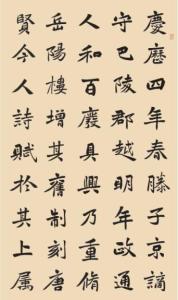 慶歷四年春滕子京謫
守巴陵郡越明年政通
人和百廢具興乃重脩
岳陽樓增其舊制刻唐
賢今人詩賦於其上属